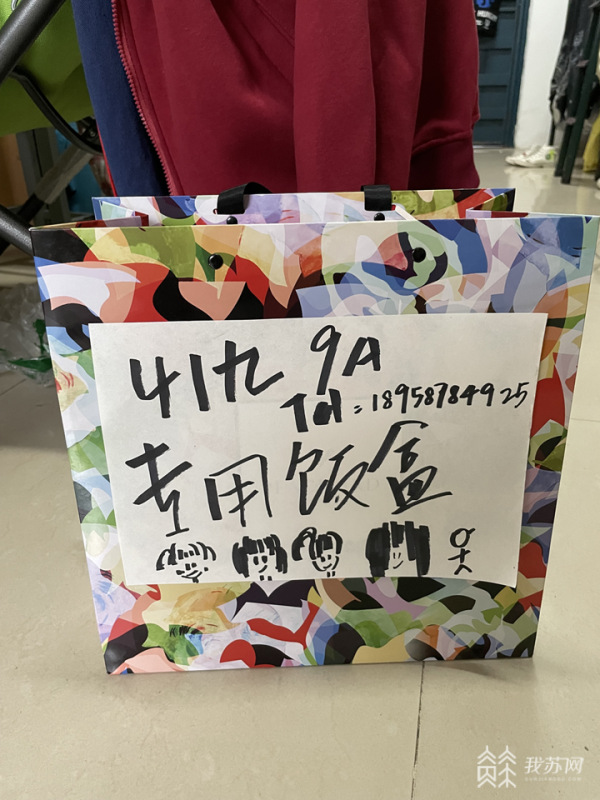 419 9A
Tel:18958784925
专用饭盒
我苏网